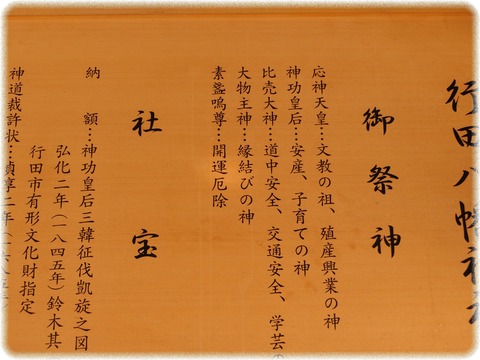 行田八幡神社
御祭神
応神天皇…文教の祖、殖産興業の神
神功皇后…安産、子育ての神
比売大神…道中安全、交通安全、学芸の
大物主神…縁結びの神
素盞嗚尊…開運厄除
社宝
納額…神功皇后三韓征伐凱旋之図
弘化二年(一八四五年)鈴木其
行田市有形文化財指定
神道裁許状…貞享二年(一六八五